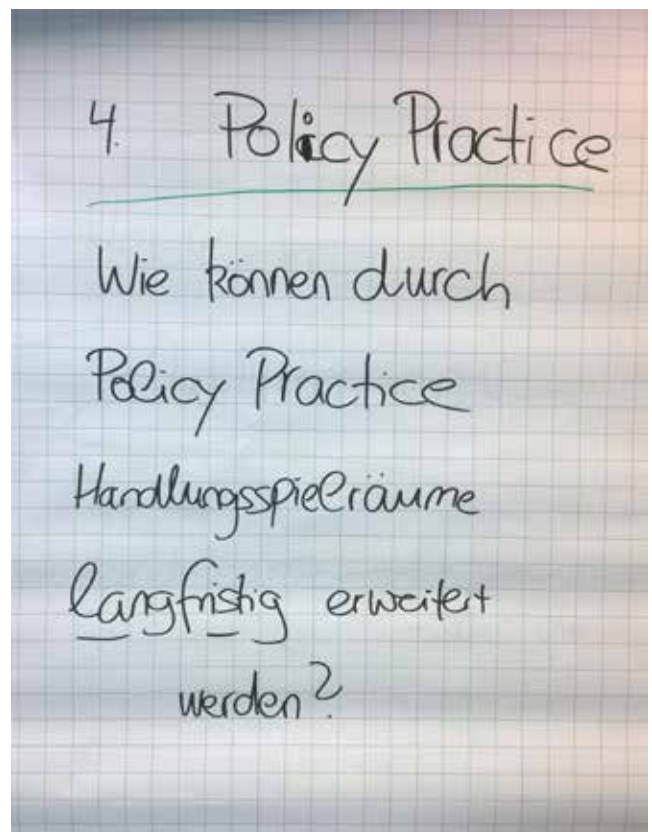 4. Policy Practice
Wie können durch
Policy Practice
Handlungsspielräume
langfristig erweitert
werden?